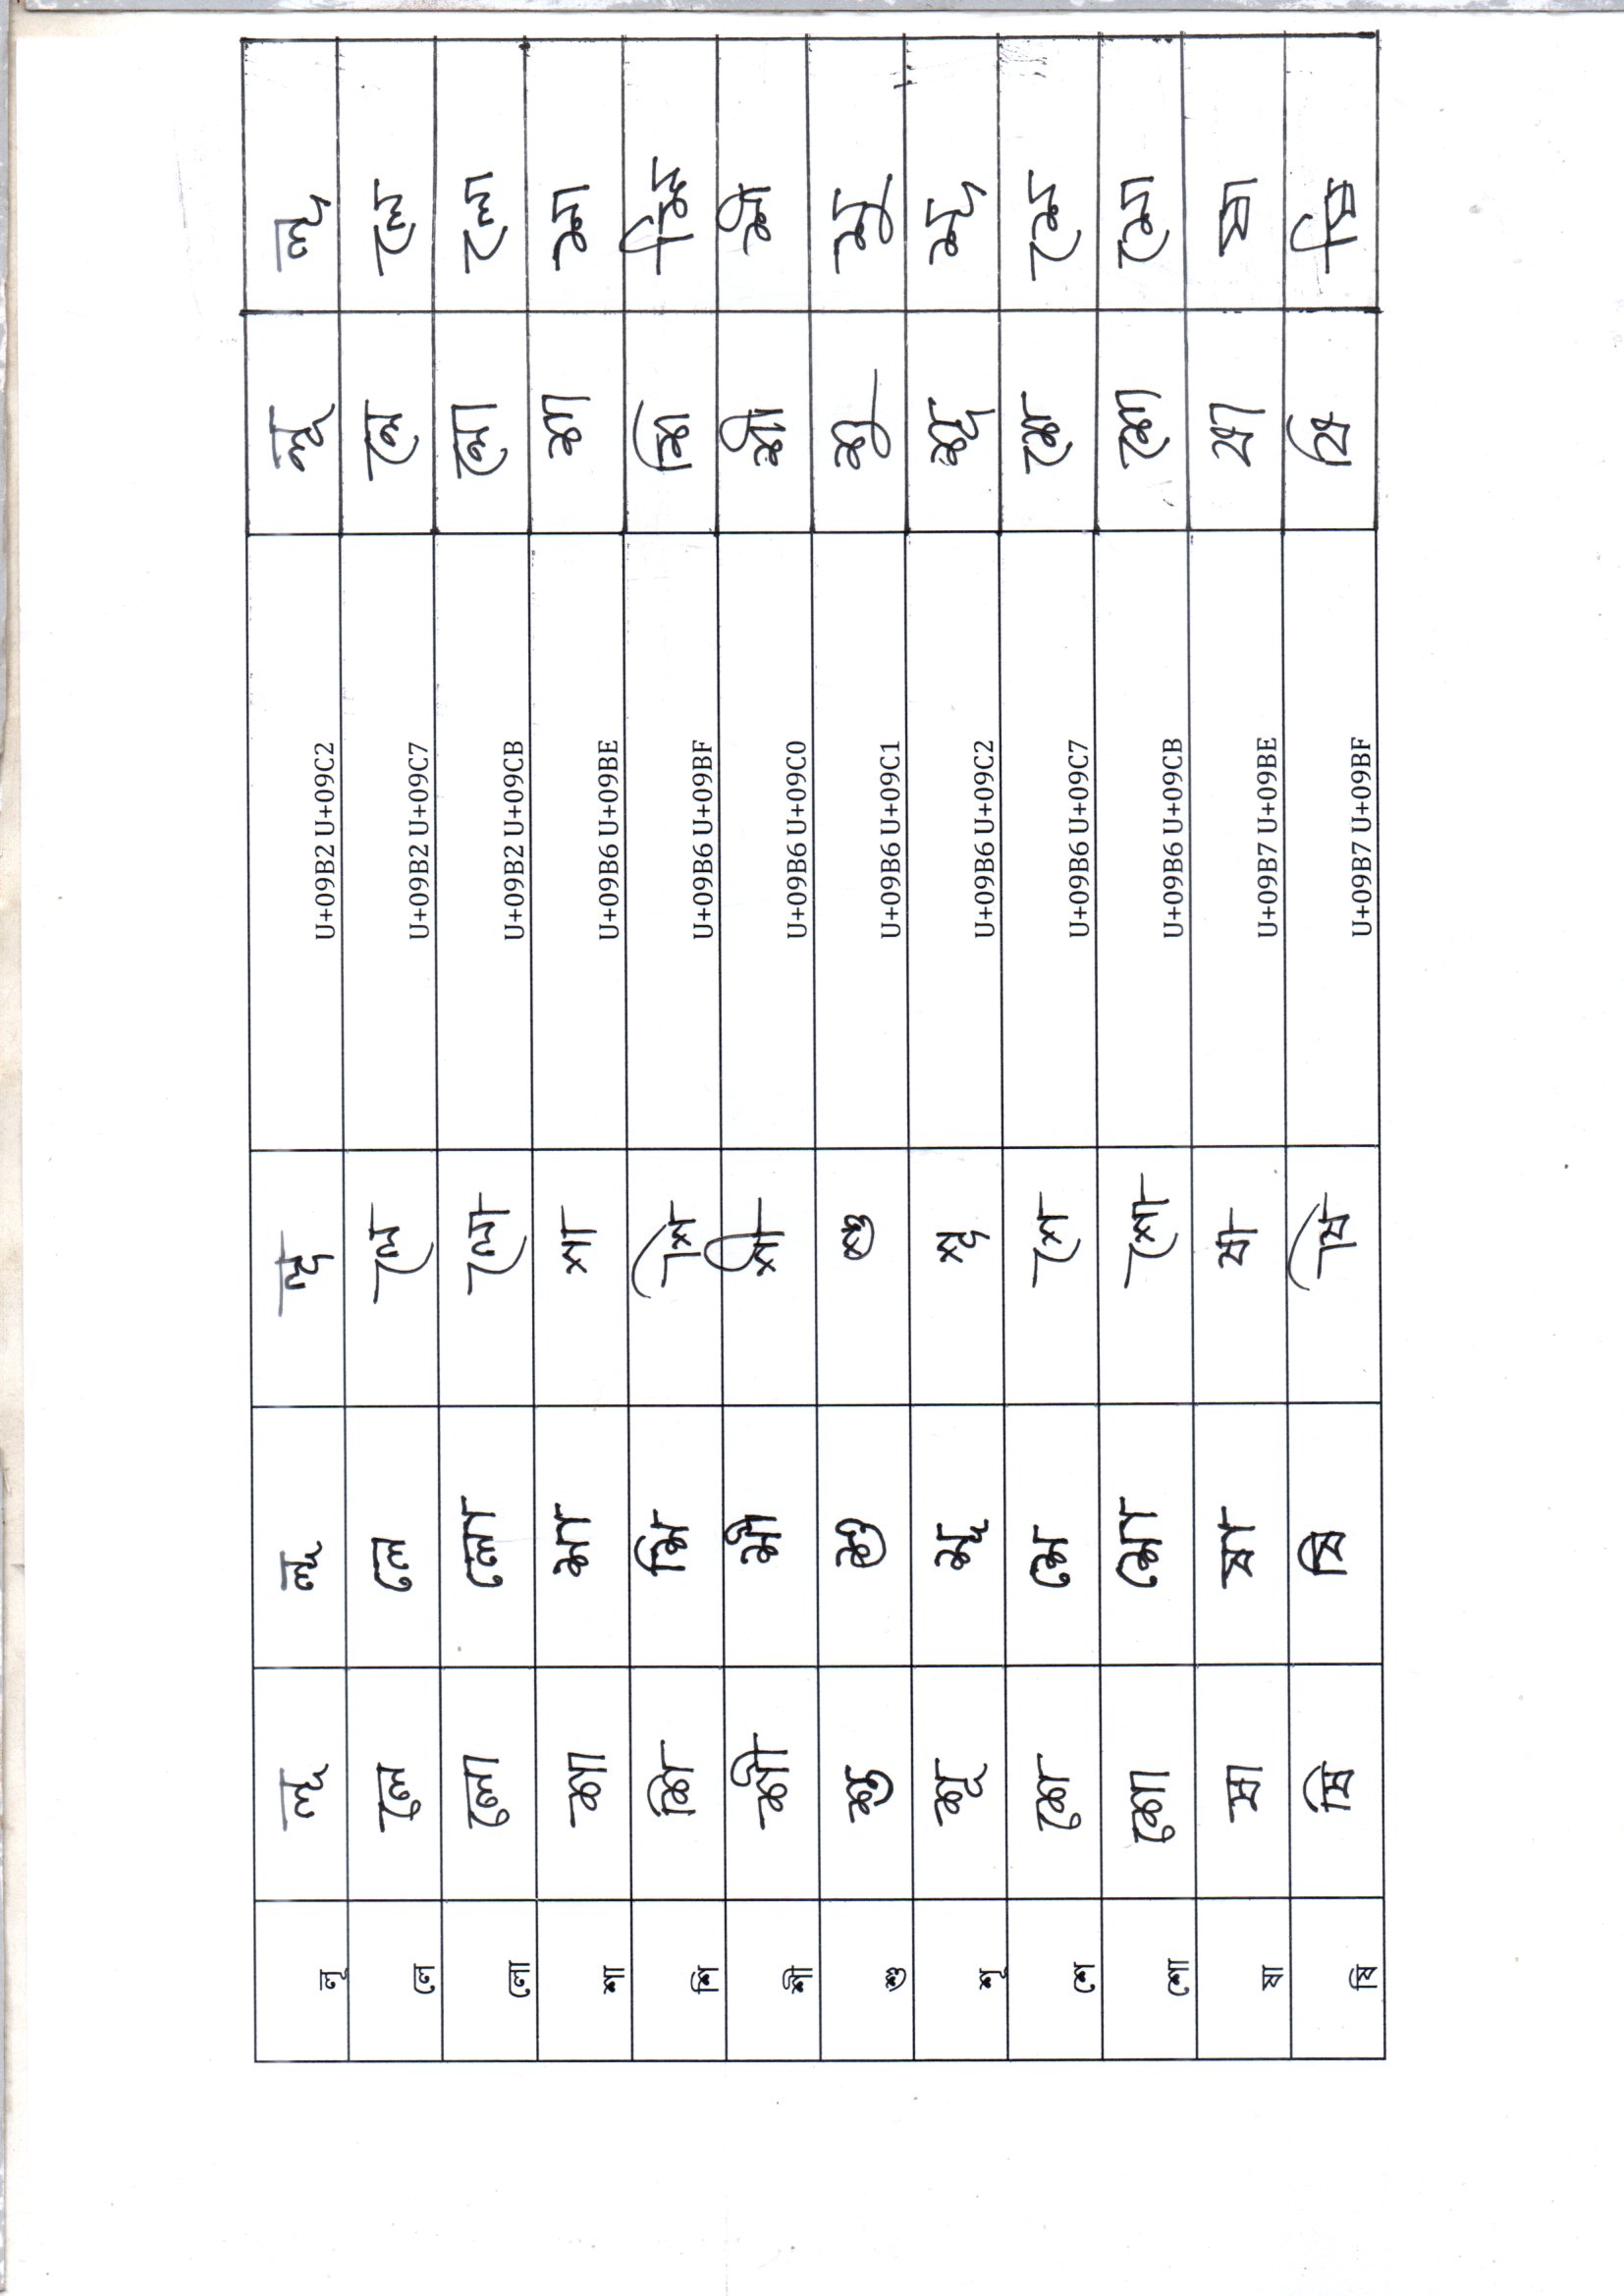 লূ লূ লূ লূ U+09B2 U+09C2 লূ লূ
লে লে লে লে U+09B2 U+09C7 লে লে
লো লো লো লো U+09B2 U+09CB লো লো
শা শা শা শা U+09B6 U+09BE শা শা
শি শি শি শি U+09B6 U+09BF শি শি
শী শী শী শী U+09B6 U+09C0 শী শী
শু শু শু শু U+09B6 U+09C1 শু শু
শূ শূ শূ শূ U+09B6 U+09C2 শূ শূ
শে শে শে শে U+09B6 U+09C7 শে শে
শো শো শো শো U+09B6 U+09CB শো শো
ষা ষা ষা ষা U+09B7 U+09BE ষা ষা
ষি ষি ষি ষি U+09B7 U+09BF ষি ষি